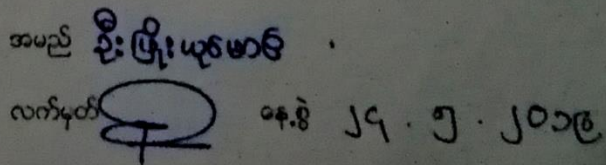 အမည် ဦးဖြိုးယုမောင်
လက်မှတ် နေ့စွဲ ၂၄ . ၅ . ၂၀၁၉